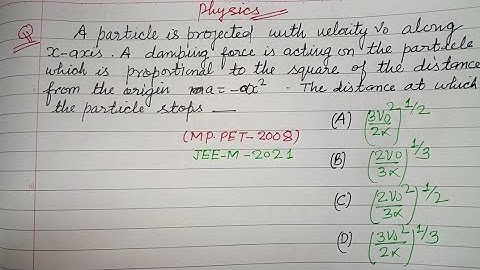 Physics
Q A particle is projected with velocity v₀ along
x-axis. A damping force is acting on the particle
which is proportional to the square of the distance
from the origin ma = -αx². The distance at which
the particle stops __
(MP PET-2008)
JEE-M-2021
(A) (3v₀²/2α)^1/2
(B) (2v₀/3α)^1/3
(C) (2v₀²/3α)^1/2
(D) (3v₀²/2α)^1/3